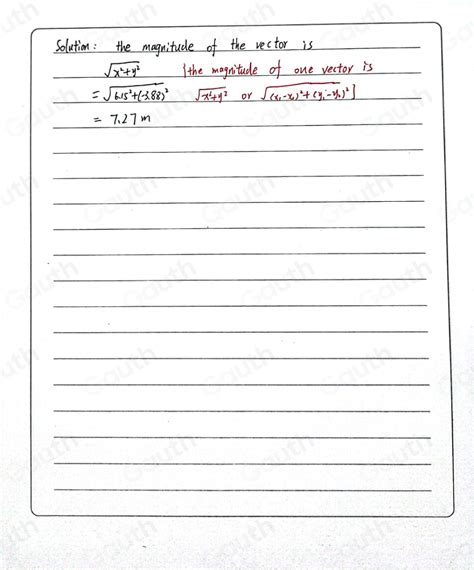 Solution: the magnitude of the vector is
√x²+y² [the magnitude of one vector is
= √6.15²+(-3.88)² √x²+y² or √(x₁-x₂)²+(y₁-y₂)²]
= 7.27 m
Gauth